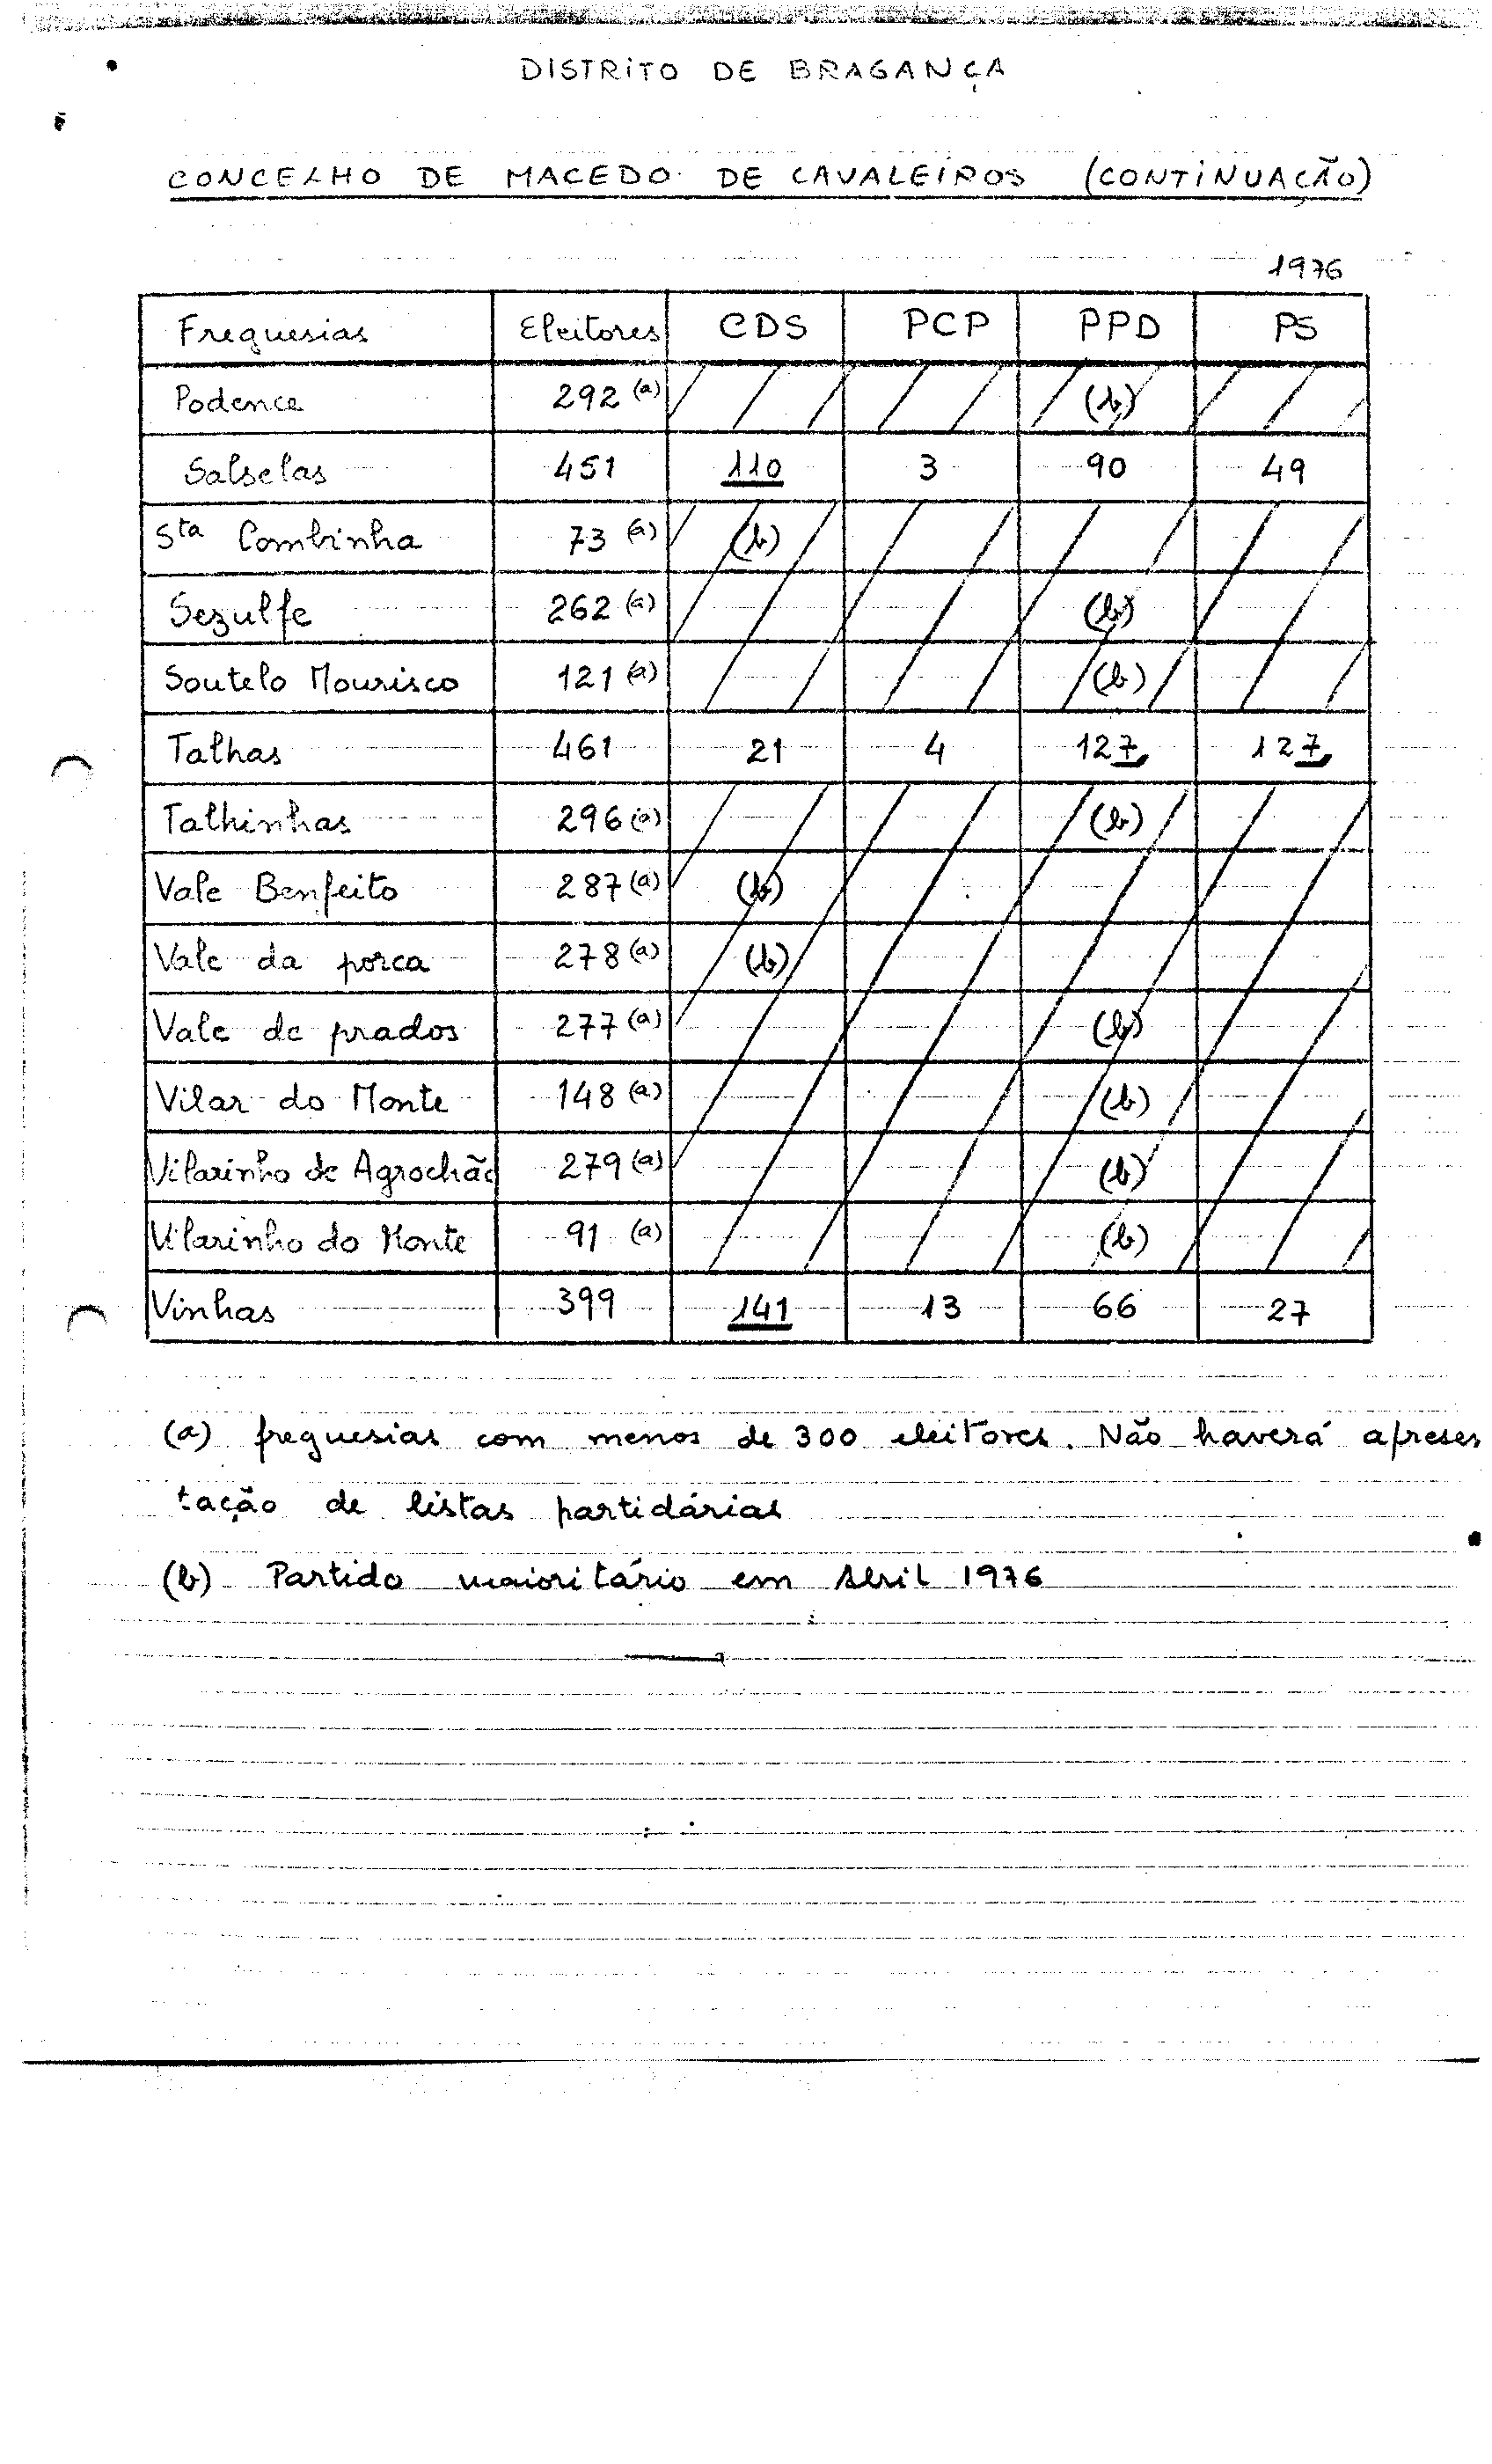 DISTRITO DE BRAGANÇA
CONCELHO DE MACEDO DE CAVALEIROS (CONTINUAÇÃO)
1976
Freguesias Eleitores CDS PCP PPD PS
Podence 292 (a) (b)
Salselas 451 110 3 90 49
Sta Combinha 73 (a) (b)
Sezulfe 262 (a) (b)
Soutelo Mourisco 121 (a) (b)
Talhas 461 21 4 127 127
Talhinhas 296 (a) (b)
Vale Benfeito 287 (a) (b)
Vale da porca 278 (a) (b)
Vale de prados 277 (a) (b)
Vilar do Monte 148 (a) (b)
Vilarinho de Agrochão 279 (a) (b)
Vilarinho do Monte 91 (a) (b)
Vinhas 399 141 13 66 27
(a) freguesias com menos de 300 eleitores. Não haverá apresen
tação de listas partidárias
(b) Partido maioritário em Abril 1976